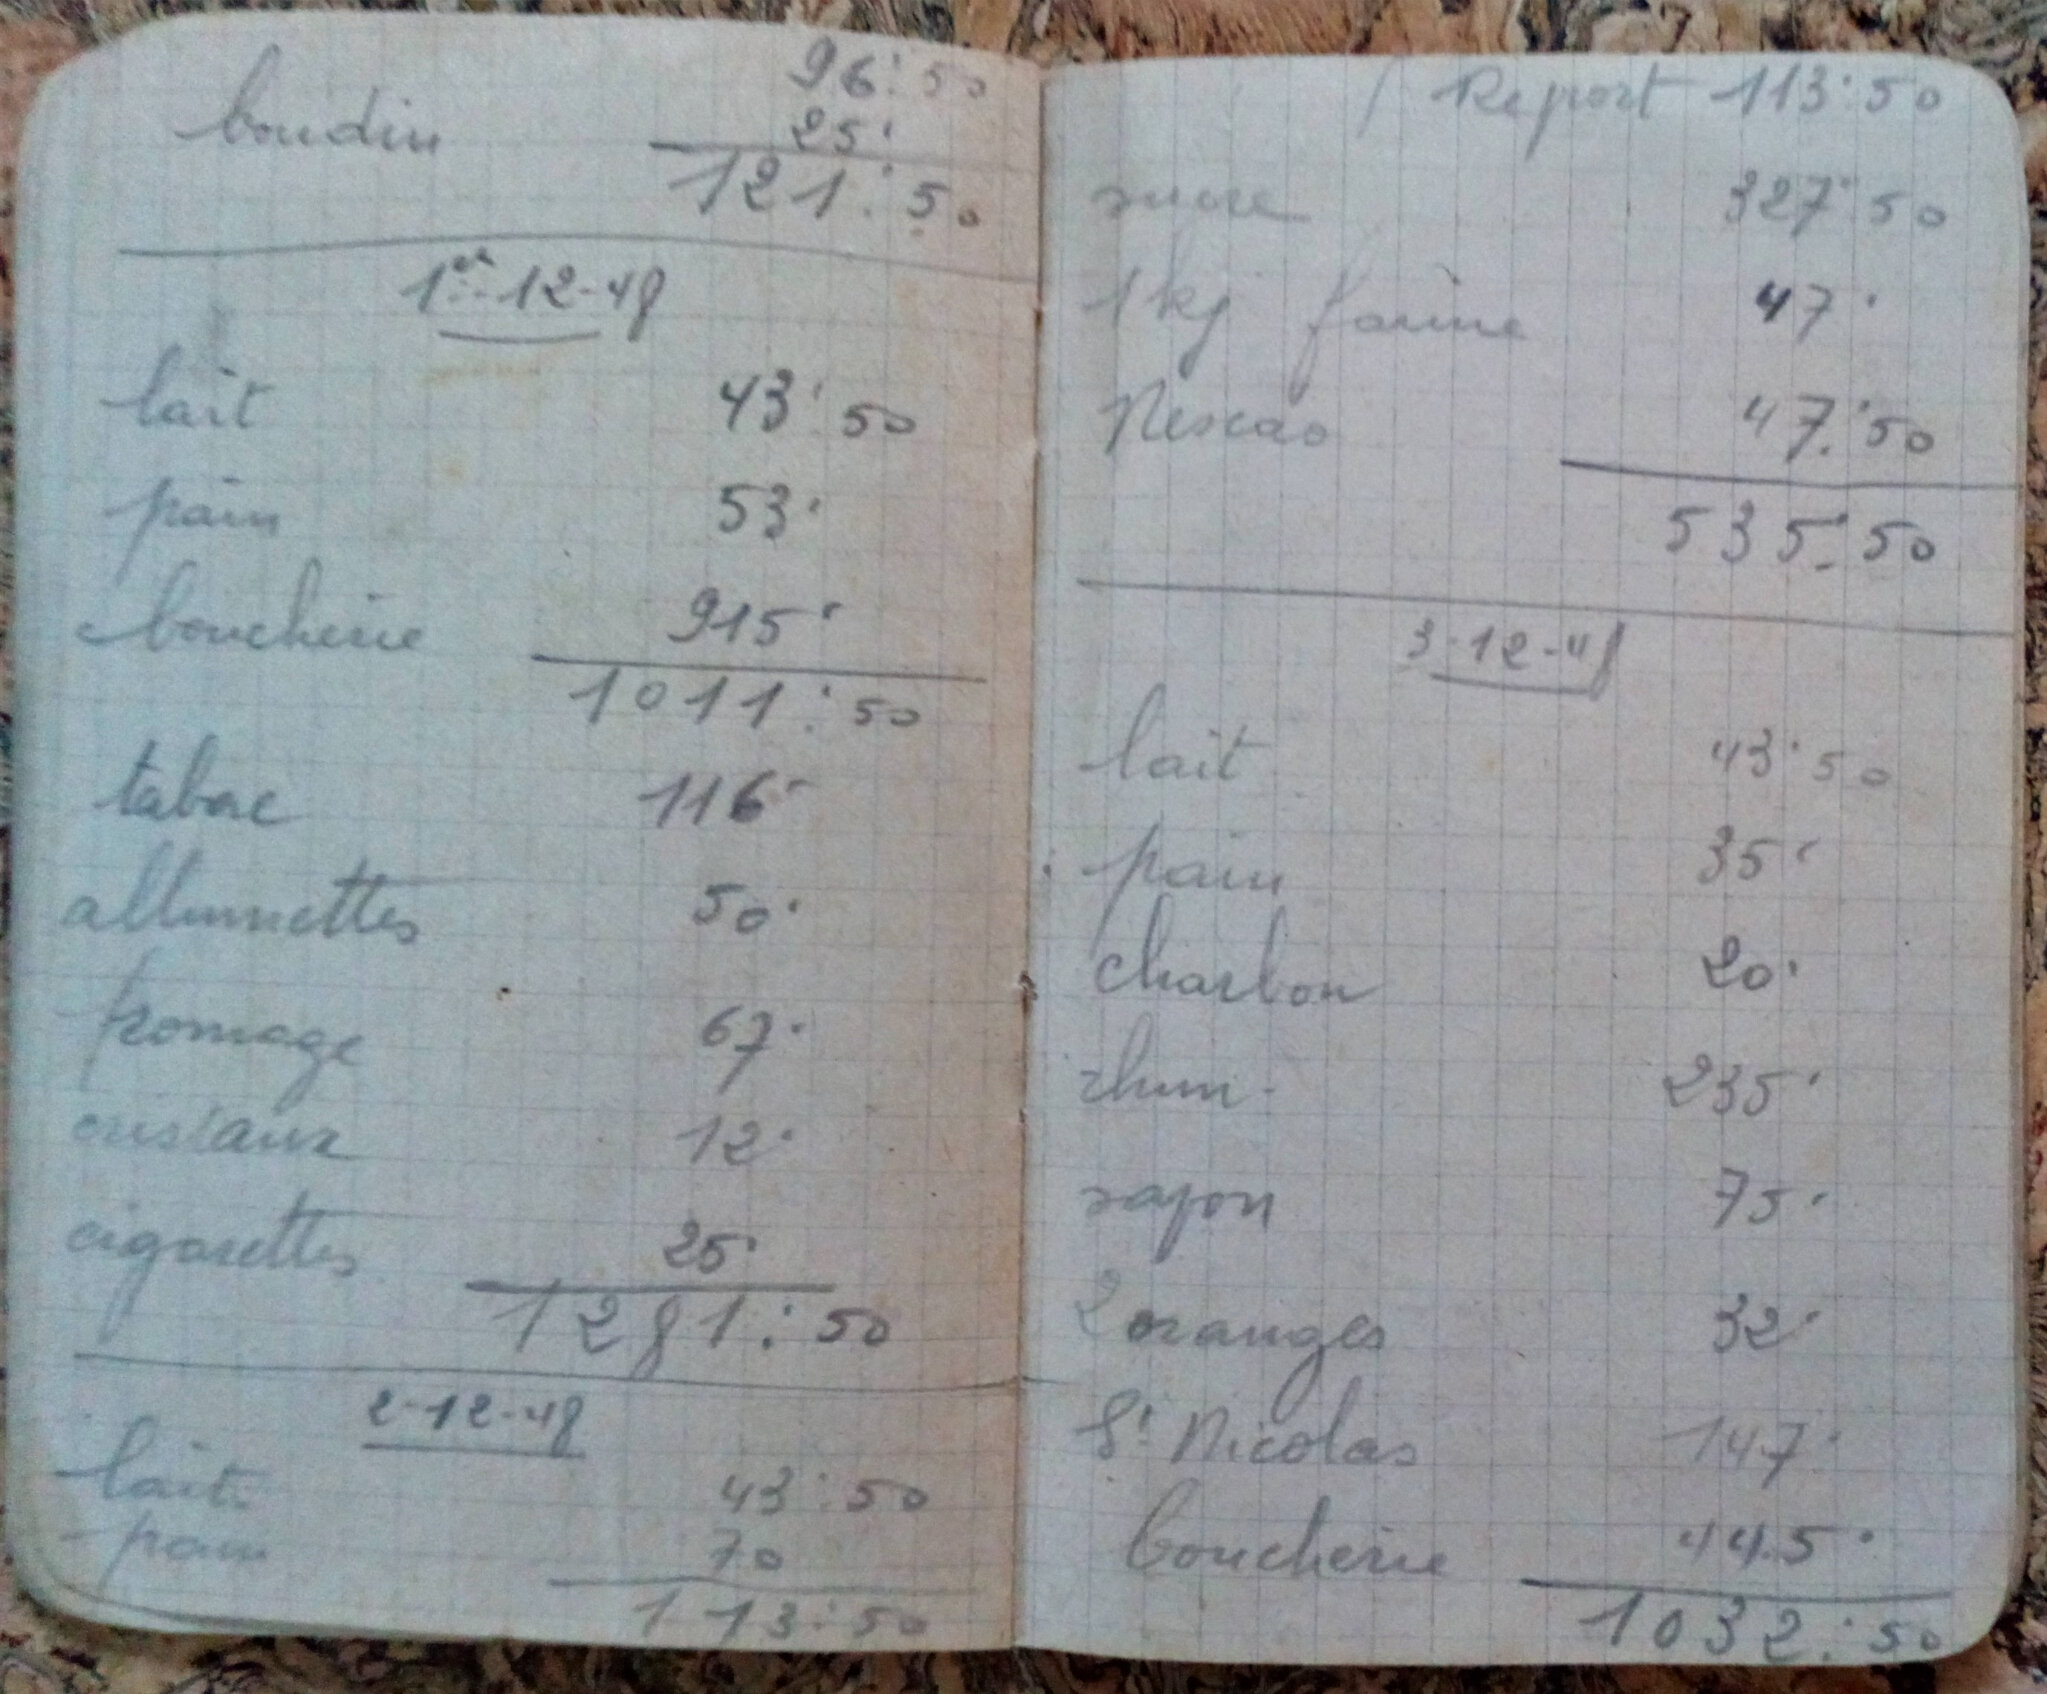 96:50
boudin 25:
121:50
1er-12-48
lait 43:50
pain 53:
boucherie 915:
1011:50
tabac 116-
allumettes 50.
fromage 67.
cristaux 12.
cigarettes 25
1281:50
2-12-48
lait 43:50
pain 70
113:50
Report 113:50
sucre 327:50
1kg farine 47.
Nescao 47:50
535:50
3-12-48
lait 43:50
pain 35.
charbon 20.
rhum 235.
savon 75.
2 oranges 32.
St Nicolas 147.
boucherie 445.
1032:50